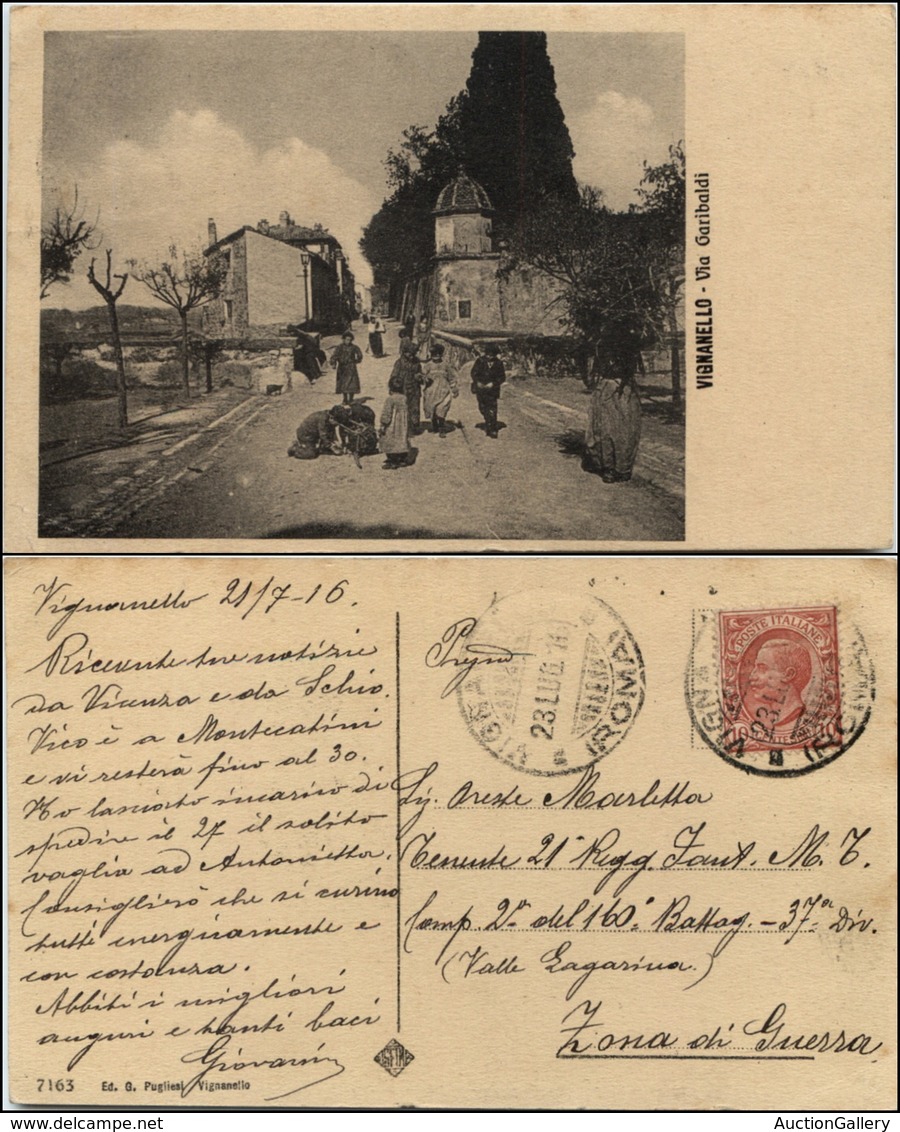 VIGNANELLO - Via Garibaldi
Vignanello 21/7-16.
Ricevute tue notizie
da Vicenza e da Schio.
Vico è a Montecatini
e vi resterà fino al 30.
Ho lasciato incarico di
spedire il 27 il solito
vaglia ad Antonietta.
Consiglierò che si curino
tutti energicamente e
con costanza.
Abbiti i migliori
auguri e tanti baci
Giovanni
7163 Ed. G. Pugliesi Vignanello
23 LUG. 16
(ROMA)
POSTE ITALIANE
Sig. Oreste Marletta
Tenente 21° Regg. Fant. M. T.
Comp. 2a del 160° Battag. - 37a Div.
(Valle Lagarina)
Zona di Guerra
AuctionGallery